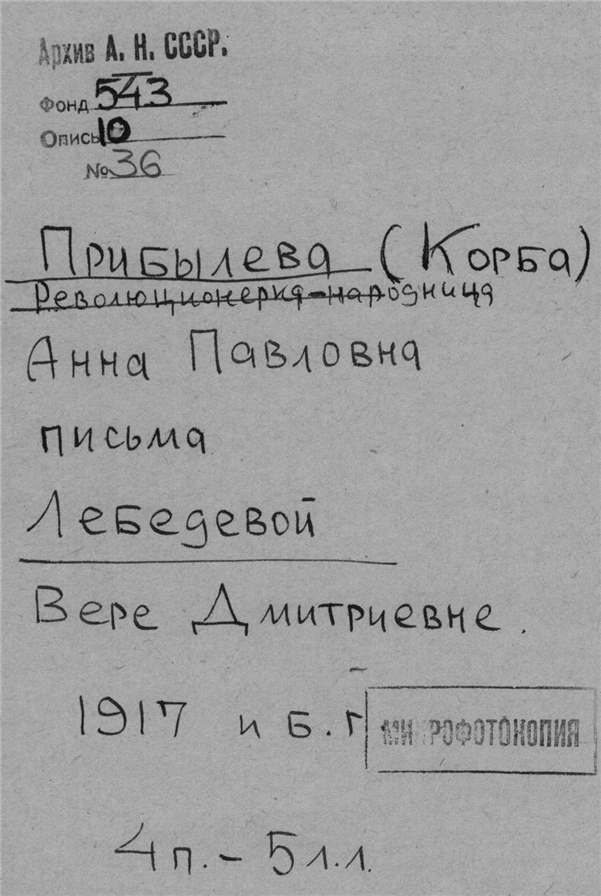 Архив А. Н. СССР.
Фонд 543
Опись 10
№ 36
Прибылева (Корба)
Революционерка-народница
Анна Павловна
письма
Лебедевой
Вере Дмитриевне.
1917 и б.г
МИКРОФОТОКОПИЯ
4п.-5л.л.